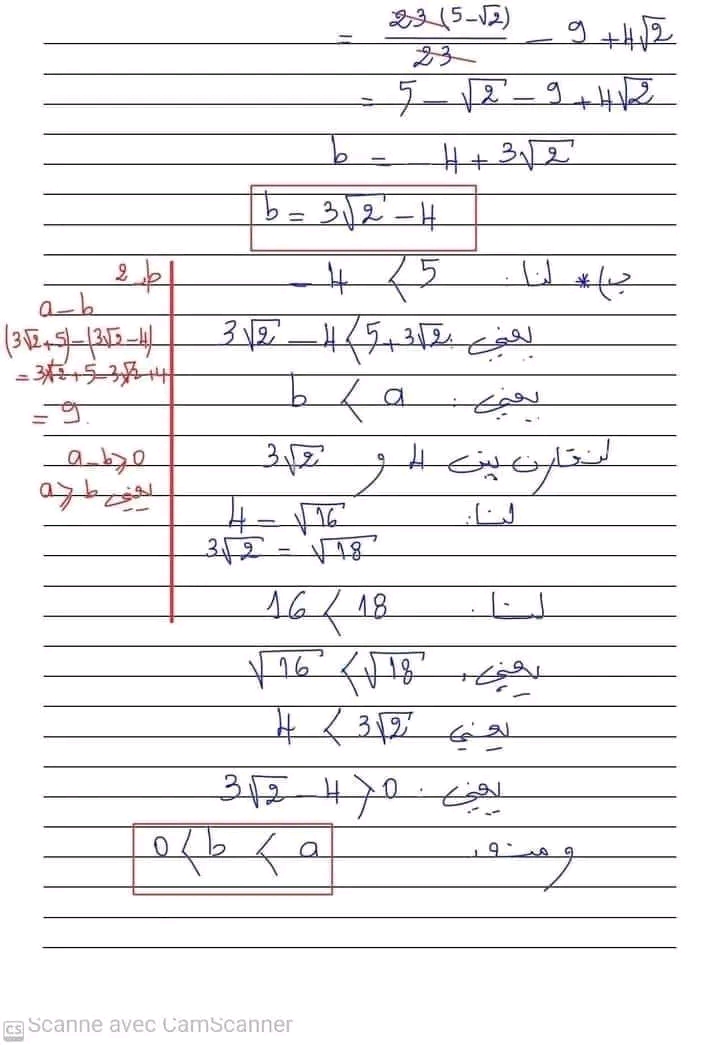 = 23(5-√2)/23 - 9 + 4√2
= 5 - √2 - 9 + 4√2
b = - 4 + 3√2
b = 3√2 - 4
ب) * لنا: - 4 < 5
يعني: 3√2 - 4 < 5 + 3√2
يعني: b < a
لنقارن بين 4 و 3√2
لنا: 4 = √16
3√2 = √18
لنا: 16 < 18
يعني: √16 < √18
يعني 4 < 3√2
يعني: 3√2 - 4 > 0
و منه: 0 < b < a
a-b
(3√2+5)-(3√2-4)
= 3√2+5-3√2+4
= 9.
a-b⩾0
يعني a⩾b
CS Scanné avec CamScanner